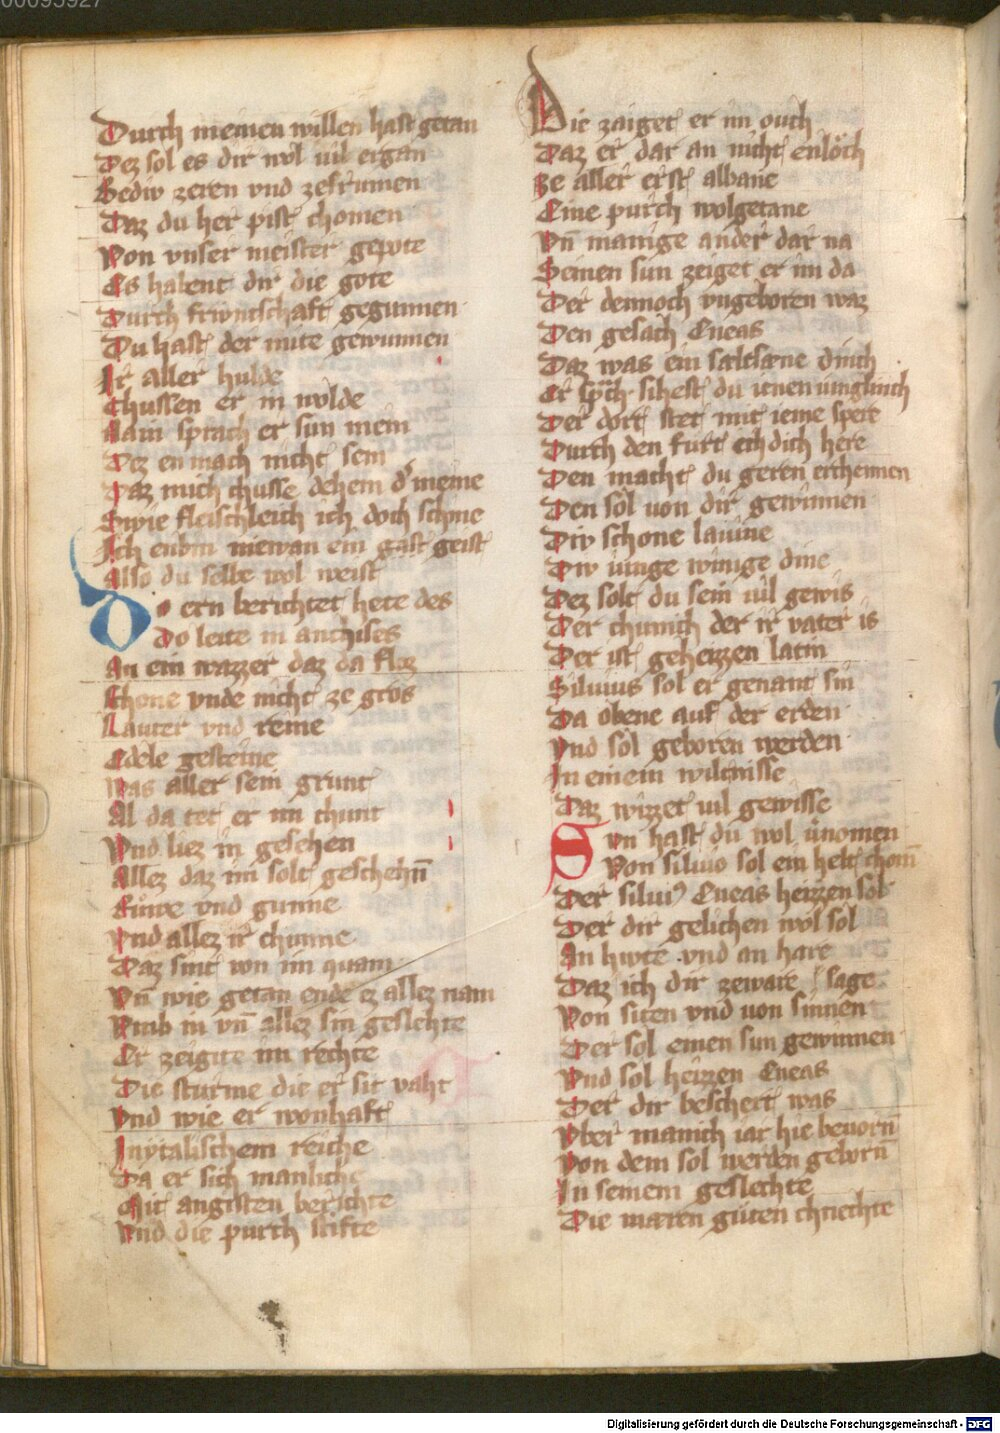 00095927
Durch meinen willen hast getan
Dez sol es dir wol uil ergan
Bediv zeren vnd zefrumen
Daz du her pist chomen
Von vnser meister gepote
Es habent dir die gote
Durch friwntschaft gegunnen
Du hast der mite gewunnen
Ir aller hulde
Chussen er in wolde
Nain sprach er sun mein
Dez en mach nicht sein
Daz mich chusse dehein d meine
Swie fleischleich ich doch schine
Ich enbin niewan ein gast geist
Also du selbe wol weist
Do ern berichtet hete des
Do leite in anchises
An ein wazzer daz da floz
Schone vnde nicht ze gros
Lauter vnd reine
Edele gesteine
Was aller sein grunt
Al da tet er im chunt
Vnd liez in gesehen
Allez daz im solt geschehn̄
Ruwe vnd gunne
Vnd allez ir chunne
Daz sint von im quam
Vn̄ wie getan ende ez allez nam
Vmb in vn̄ allez sin geslehte
Er zeigite im rechte
Die sturme die er sit vaht
Vnd wie er wonhaft
In ytalischem reiche
Da er sich manliche
Mit angisten berichte
Vnd die purch stifte
Die zaiget er im ouch
Daz er dar an nicht enloch
Ze aller erst albane
Eine purch wolgetane
Vn̄ manige ander dar na
Seinen sun zeiget er im da
Der dennoch vngeboren waz
Den gesach Eneas
Daz was ein sæltsæne dinch
Er sp̄ch sihest du ienen iunglinch
Der dort stet mit ieme spere
Durch den furt ech dich here
Den macht du geren erchennen
Den sol uon dir gewinnen
Div schone lauine
Div iunge winige dine
Dez solt du sein uil gewis
Der chunich der ir vater is
Der ist geheizzen latin
Siluius sol er genant sin
Da obene auf der erden
Vnd sol geboren werden
In einem wiltnisse
Daz wizzet uil gewisse
Svn hast du wol u̇nomen
Von siluio sol ein helt chom̄
Der silui⁹ Eneas heizzen sol
Der dir gelichen wol sol
An hwte vnd an hare
Daz ich dir zeware sage
Von siten vnd uon sinnen
Der sol einen sun gewinnen
Vnd sol heizzen Eneas
Der dir beschert was
Vber manich iar hie beuorn̄
Von dem sol werden geborn̄
In seinem geslechte
Die mæren guten chnechte
Digitalisierung gefördert durch die Deutsche Forschungsgemeinschaft - DFG